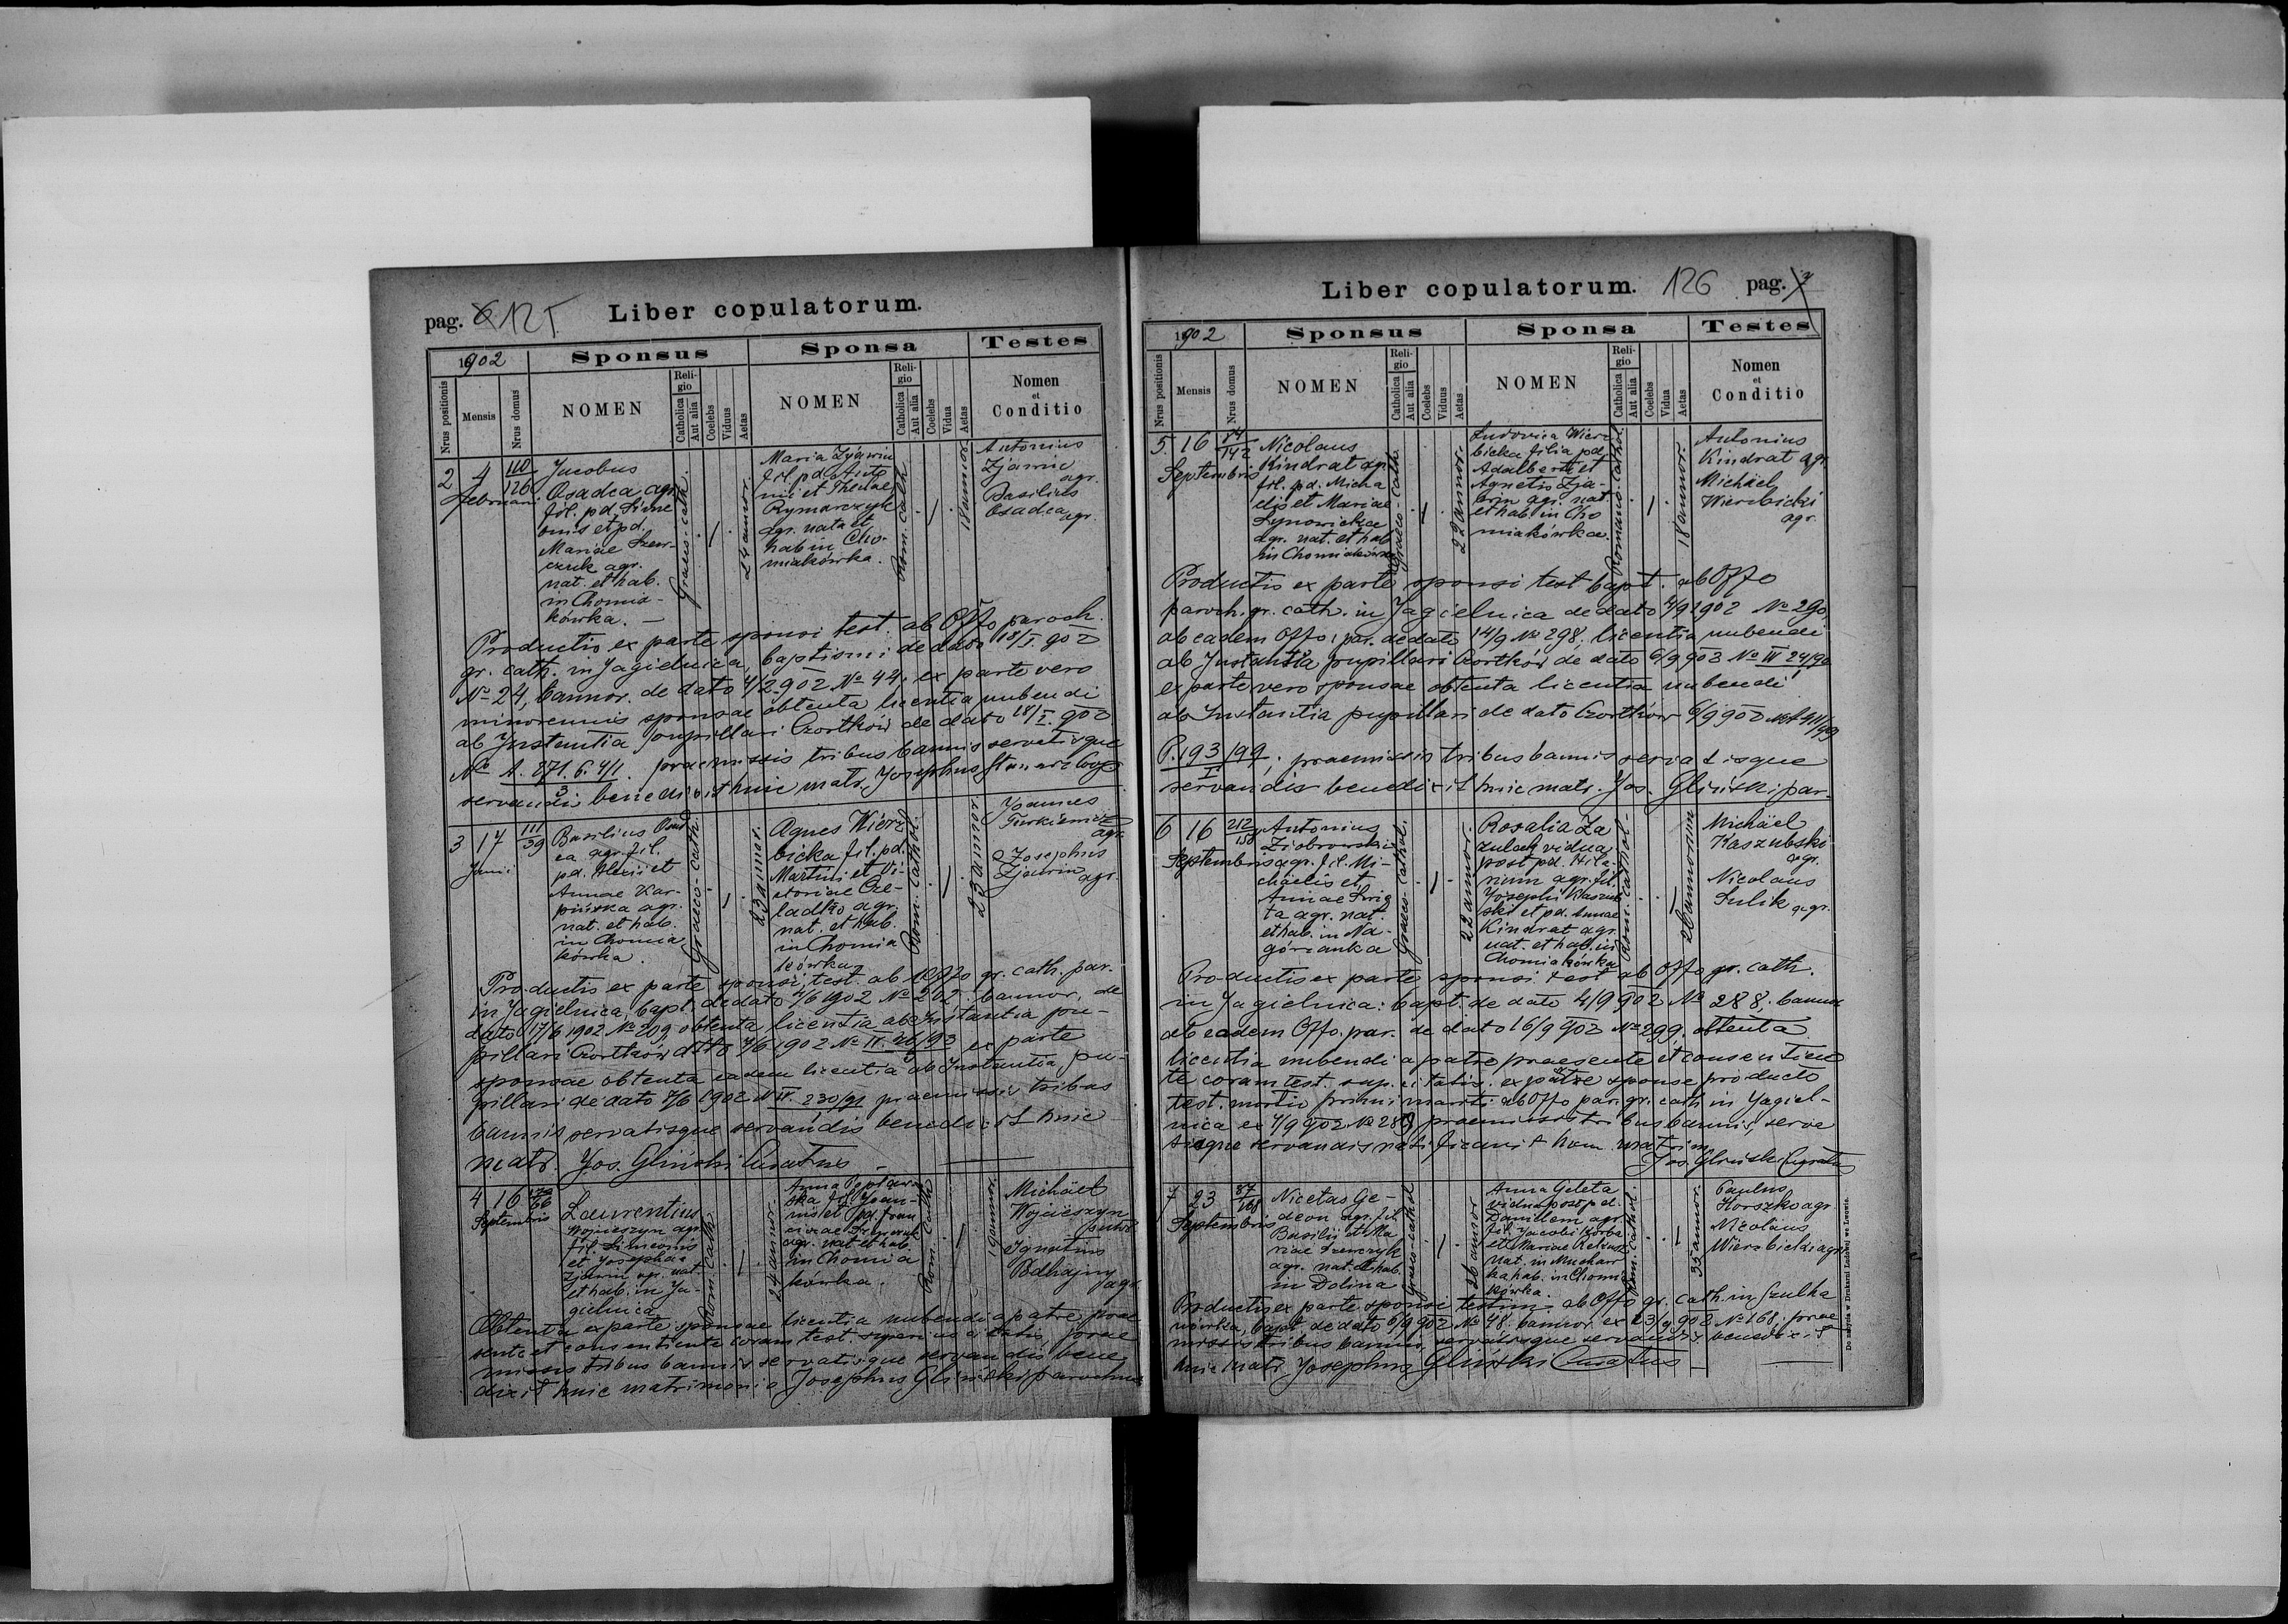 pag. 6 125 Liber copulatorum.
1902 Sponsus Sponsa Testes
Nrus positionis
Mensis
Nrus domus
NOMEN
Religio
Catholica
Aut alia
Coelebs
Viduus
Aetas
NOMEN
Religio
Catholica
Aut alia
Coelebs
Vidua
Aetas
Nomen
et
Conditio
2 4 110
126
Februarii
Jacobus
Osadca agr.
fil. pd. Sime
onis et pd.
Mariae Szew-
czuk agr.
nat. et hab.
in Chomia-
kówka. —
Graeco-cath.
24 annor.
Maria Zjawin
fil. pd. Anto
nii et Theclae
Rymarczyk
agr. nata et
hab in Cho-
miakówka.
Rom. cath.
18 annor.
Antonius
Zjawin
agr.
Basilius
Osadca agr.
Productis ex parte sponsi test. ab Offo paroch.
gr. cath. in Jagielnica, baptismi de dato 18/I. 902
No 24, bannor. de dato 4/2 902 No 44; ex parte vero
minorennis sponsae obtenta licentia nubendi
ab Instantia pupillari Czortków de dato 18/I. 902
No A. 271. 6. 4/1 praemissis tribus bannis servatisque
3
servandis benedixit huic matr. Josephus
3 17 111
39
Junii
Basilius Osad
ca agr. fil.
pd. Alexii et
Annae Kar-
pińska agr.
nat. et hab.
in Chomia
kówka.
Graeco-cath.
23 annor.
Agnes Wierz
bicka fil. pd.
Martini et Vi-
ctoriae Cze-
ladko agr.
nat. et hab.
in Chomia
kówka
Rom. cathol.
23 annor.
Joannes
Turkiewicz
agr.
Josephus
Zjawin agr.
Productis ex parte sponsi, test. ab Offo gr. cath. par.
in Jagielnica, bapt. de dato 4/6 1902 No 202. bannor. de
dato 17/6 1902 No 209, obtenta licentia ab Instantia pu-
pillari Czortków dtto 7/6 1902 No II. 26/93 ex parte
sponsae obtenta eadem licentia ab Instantia pu-
pillari de dato 7/6 1902 N II. 230/91 praemissis tribus
bannis servatisque servandis benedixit huic
matr. Jos. Gliński Curatus —
4 16
66
Septembris
Laurentius
Wojcieszyn agr
fil. Simeonis
et Josephae
Zjawin agr. nat.
et hab. in Ja-
gielnica
Rom. cath.
24 annor.
Anna
ska fil. Joan-
nis et pd. Fran
ciscae
agr. nat et hab.
in Chomia
kówka.
Rom. cath.
19 annor.
Michäel
Wojcieszyn
Ignatius
Podhajny
agr.
Obtenta ex parte sponsae licentia nubendi a patre prae
sente et consentiente coram test. superius citatis, prae
missis tribus bannis servatisque servandis bene
dixit huic matrimonio Josephus Gliński parochus
Liber copulatorum. 126 pag. 7
1902 Sponsus Sponsa Testes
Nrus positionis
Mensis
Nrus domus
NOMEN
Religio
Catholica
Aut alia
Coelebs
Viduus
Aetas
NOMEN
Religio
Catholica
Aut alia
Coelebs
Vidua
Aetas
Nomen
et
Conditio
5 16 84
142
Septembris
Nicolaus
Kindrat agr.
fil. pd. Micha
elis et Mariae
Synowickae
agr. nat. et hab
in Chomiakówka
Graeco-cath.
22 annor.
Ludovica Wierz
bicka filia pd.
Adalberti et
Agnetis Zja-
win agr. nat.
et hab in Cho
miakówka.
Romano-cathol.
18 annor.
Antonius
Kindrat agr.
Michäel
Wierzbicki
agr.
Productis ex parte sponsi test bapt. ab Offo
paroch. gr. cath. in Jagielnica de dato 4/9 1902 No 290,
ab eadem Offo. par. de dato 14/9 No 298, licentia nubendi
ab Instantia pupillari Czortków de dato 6/9 902 No III 24/90
ex parte vero sponsae obtenta licentia nubendi
ab Instantia pupillari de dato Czortków 6/9 902
P. 193/99; praemissis tribus bannis servatisque
I
servandis benedixit huic matr. Jos. Gliński par.
6 16 212
158
Septembris
Antonius
Ziobrowski
agr. fil. Mi-
chäelis et
Annae
ta agr. nat.
et hab. in Na-
górzanka
Graeco-cathol.
22 annor.
Rosalia Za
zulak vidua
post pd. Hila
rium agr. fil.
Josephi Kaszub
ski et pd. Annae
Kindrat agr.
nat. et hab. in
Chomiakówka
Rom.-cathol.-
26 annorum
Michäel
Kaszubski
agr.
Nicolaus
Sulik agr.
Productis ex parte sponsi test ab Offo gr. cath.
in Jagielnica: bapt. de dato 4/9 902 No 288, bannor
ab eadem Offo. par. de dato 16/9 902 No 299, obtenta
licentia nubendi a patre praesente et consentien
te coram test. sup. citatis; ex parte sponse producto
test. mortis primi mariti ab Offo par. gr. cath in Jagiel-
nica ex 4/9 902 No 288, praemissis tribus bannis, serva
tisque servandis ratificavit hom. matrim.
Jos. Gliński Curatus
7 23 87
168
Septembris
Nicetas Ge-
deon agr. fil.
Basilii et Ma
riae Szewczyk
agr. nat. et hab.
in Dolina
Graeco-cathol
26 annor
Anna Geleta
vidua post pd.
Danielem agr.
fil. Jacobi Korba
et Mariae
nat. in Muchaw
ka hab. in Chomia
kówka.
Rom. cathol.
35 annor.
Paulus
Horszko agr.
Nicolaus
Wierzbicki agr.
Productis ex parte sponsi testim. ab Offo gr. cath. in Szulha
nówka, bapt. de dato 6/9 902 No 48. bannor. ex 23/9 902 No 168, prae
missis tribus bannis, servatisque servandis benedixit
huic matr. Josephus Gliński Curatus
Do nabycia w Drukarni Ludowej we Lwowie.